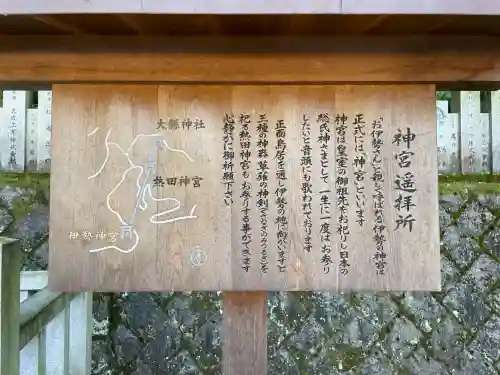 神宮遥拝所
「お伊勢さん」と親しみ呼ばれる「伊勢の神宮」は
正式には「神宮」といいます
神宮は皇室の御祖先をお祀りし日本の
総氏神さまとして「一生に一度はお参り
したい」と音頭にも歌われております
正面鳥居を通し伊勢の地に向かいますと
三種の神器「草薙の神剣(くさなぎのみつるぎ)」を
祀る熱田神宮をもお参りする事ができます
心静かに御祈願下さい
大縣神社
熱田神宮
伊勢神宮